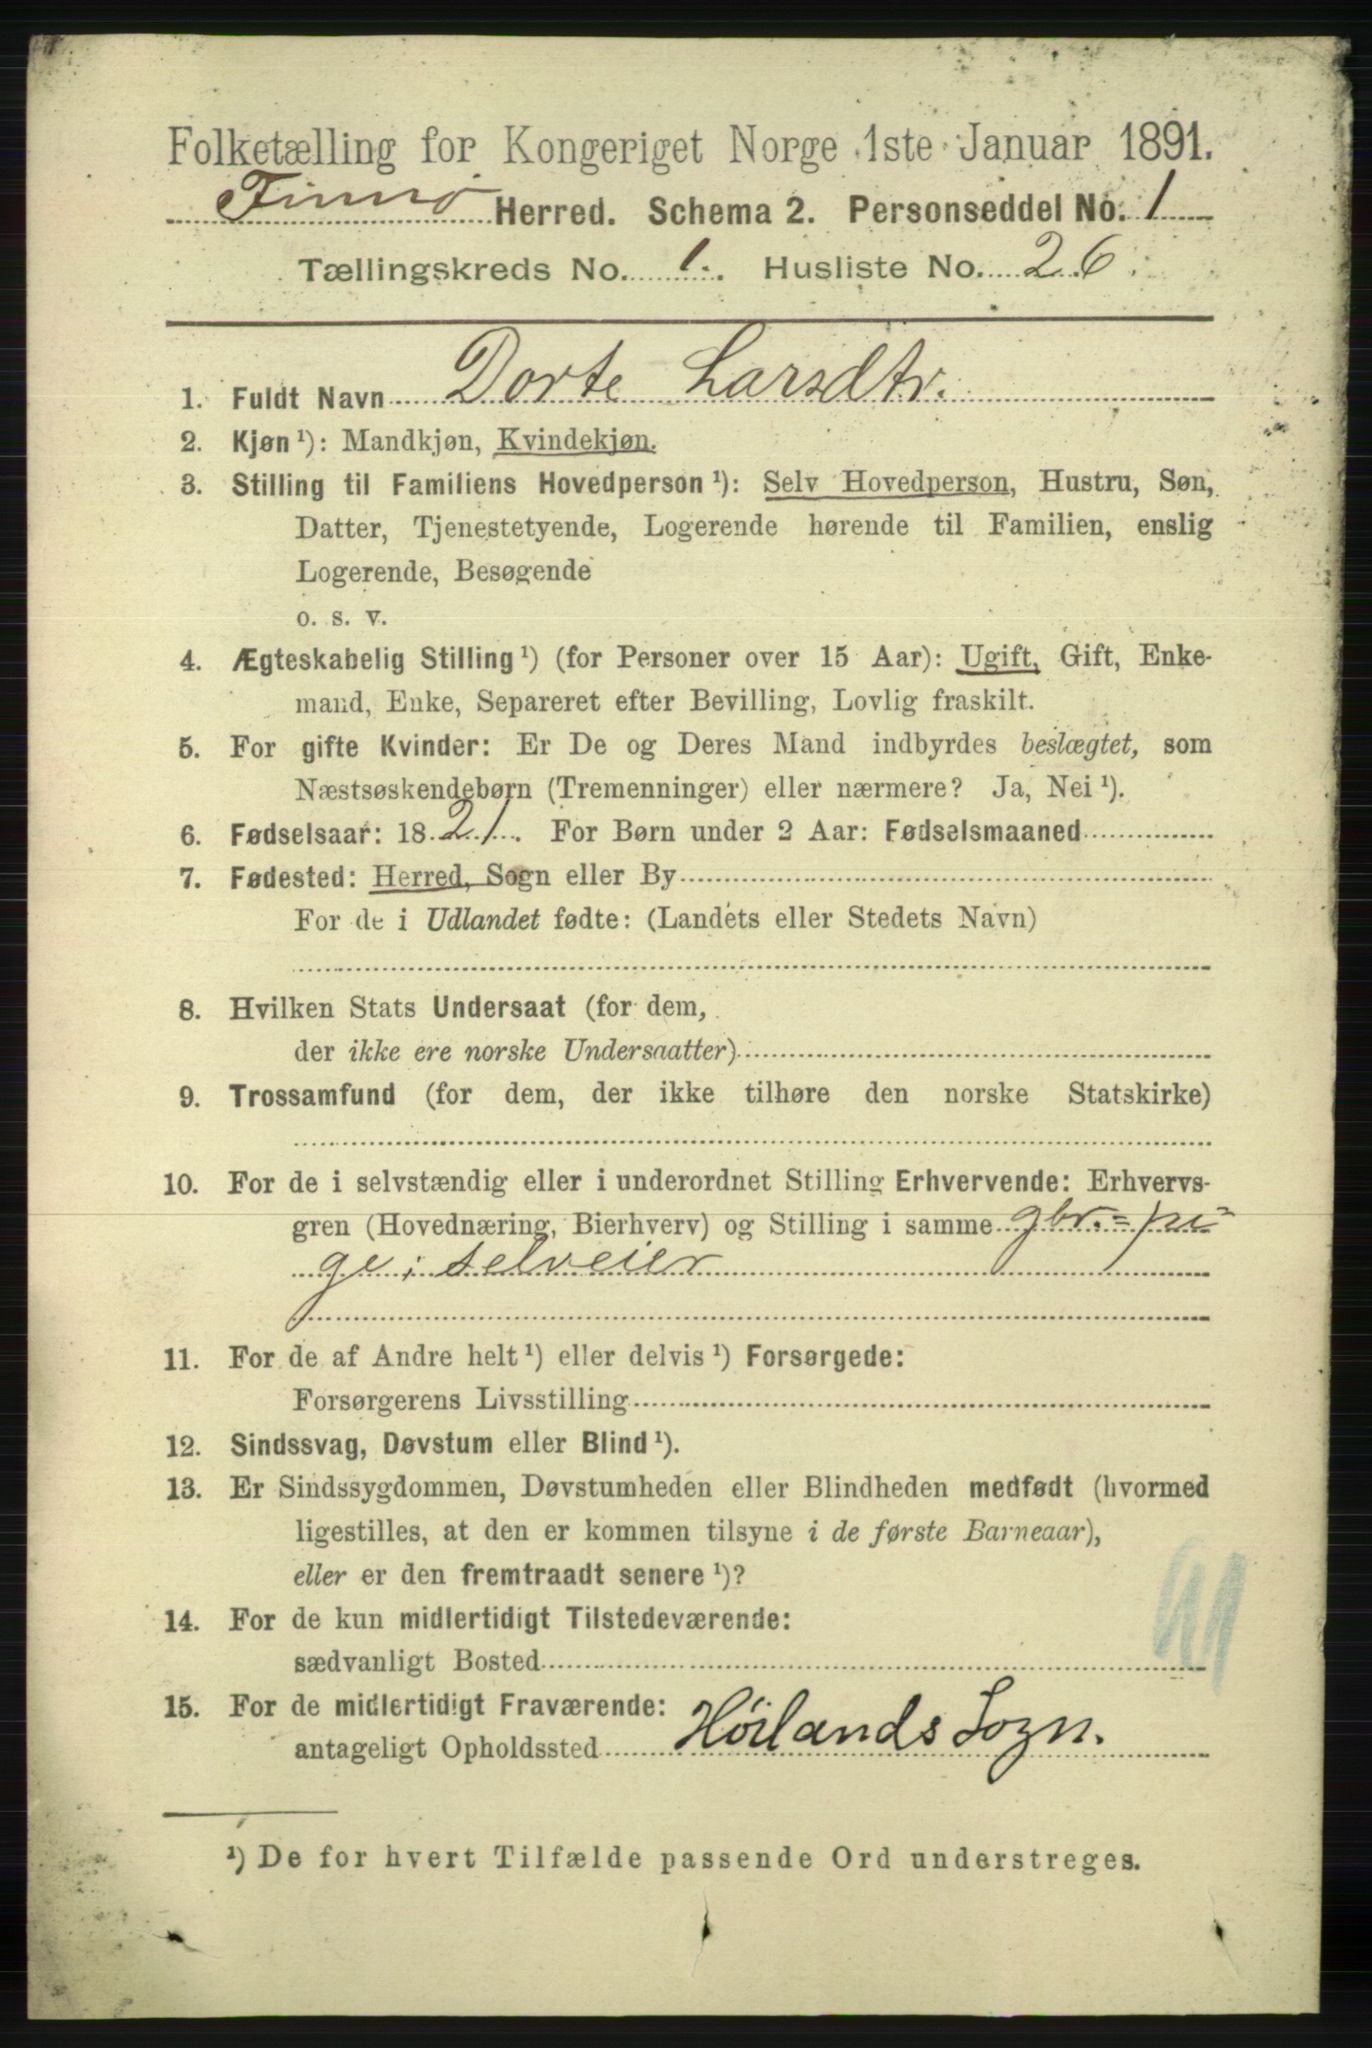 Folketælling for Kongeriget Norge 1ste Januar 1891.
Finnø Herred. Schema 2. Personseddel No. 1
Tællingskreds No. 1. Husliste No. 26.
1. Fuldt Navn Dorte Larsdtr.
2. Kjøn ¹): Mandkjøn, Kvindekjøn.
3. Stilling til Familiens Hovedperson ¹): Selv Hovedperson, Hustru, Søn,
Datter, Tjenestetyende, Logerende hørende til Familien, enslig
Logerende, Besøgende
o. s. v.
4. Ægteskabelig Stilling ¹) (for Personer over 15 Aar): Ugift, Gift, Enke-
mand, Enke, Separeret efter Bevilling, Lovlig fraskilt.
5. For gifte Kvinder: Er De og Deres Mand indbyrdes beslægtet, som
Næstsøskendebørn (Tremenninger) eller nærmere? Ja, Nei ¹).
6. Fødselsaar: 1821. For Børn under 2 Aar: Fødselsmaaned
7. Fødested: Herred, Sogn eller By
For de i Udlandet fødte: (Landets eller Stedets Navn)
8. Hvilken Stats Undersaat (for dem,
der ikke ere norske Undersaatter)
9. Trossamfund (for dem, der ikke tilhøre den norske Statskirke)
10. For de i selvstændig eller i underordnet Stilling Erhvervende: Erhvervs-
gren (Hovednæring, Bierhverv) og Stilling i samme gbr.=pi=
ge; selveier
11. For de af Andre helt ¹) eller delvis ¹) Forsørgede:
Forsørgerens Livsstilling
12. Sindssvag, Døvstum eller Blind ¹).
13. Er Sindssygdommen, Døvstumheden eller Blindheden medfødt (hvormed
ligestilles, at den er kommen tilsyne i de første Barneaar),
eller er den fremtraadt senere ¹)?
14. For de kun midlertidigt Tilstedeværende:
sædvanligt Bosted
15. For de midlertidigt Fraværende:
antageligt Opholdssted Höilands Sogn.
¹) De for hvert Tilfælde passende Ord understreges.